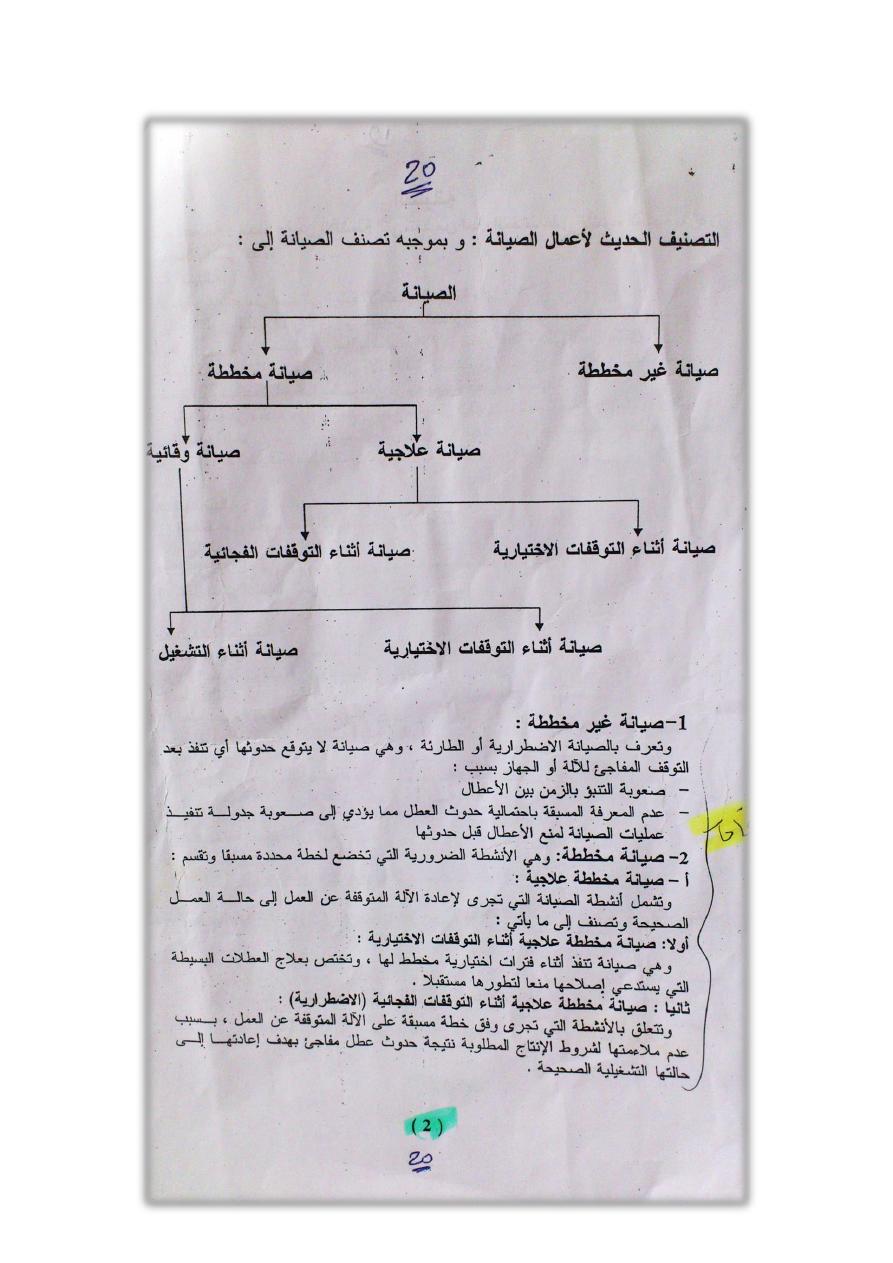 20
التصنيف الحديث لأعمال الصيانة : و بموجبه تصنف الصيانة إلى :
الصيانة
صيانة غير مخططة
صيانة مخططة
صيانة علاجية
صيانة وقائية
صيانة أثناء التوقفات الاختيارية
صيانة أثناء التوقفات الفجائية
صيانة أثناء التوقفات الاختيارية
صيانة أثناء التشغيل
1- صيانة غير مخططة :
وتعرف بالصيانة الاضطرارية أو الطارئة ، وهي صيانة لا يتوقع حدوثها أي تنفذ بعد
التوقف المفاجئ للآلة أو الجهاز بسبب :
- صعوبة التنبؤ بالزمن بين الأعطال
- عدم المعرفة المسبقة باحتمالية حدوث العطل مما يؤدي إلى صعوبة جدولة تنفيذ
عمليات الصيانة لمنع الأعطال قبل حدوثها
2- صيانة مخططة: وهي الأنشطة الضرورية التي تخضع لخطة محددة مسبقا وتقسم :
أ - صيانة مخططة علاجية :
وتشمل أنشطة الصيانة التي تجرى لإعادة الآلة المتوقفة عن العمل إلى حالة العمل
الصحيحة وتصنف إلى ما يأتي :
أولا: صيانة مخططة علاجية أثناء التوقفات الاختيارية :
وهي صيانة تنفذ أثناء فترات اختيارية مخطط لها ، وتختص بعلاج العطلات البسيطة
التي يستدعي إصلاحها منعا لتطورها مستقبلا .
ثانيا : صيانة مخططة علاجية أثناء التوقفات الفجائية (الاضطرارية) :
وتتعلق بالأنشطة التي تجرى وفق خطة مسبقة على الآلة المتوقفة عن العمل ، بسبب
عدم ملاءمتها لشروط الإنتاج المطلوبة نتيجة حدوث عطل مفاجئ بهدف إعادتها إلى
حالتها التشغيلية الصحيحة .
( 2 )
20